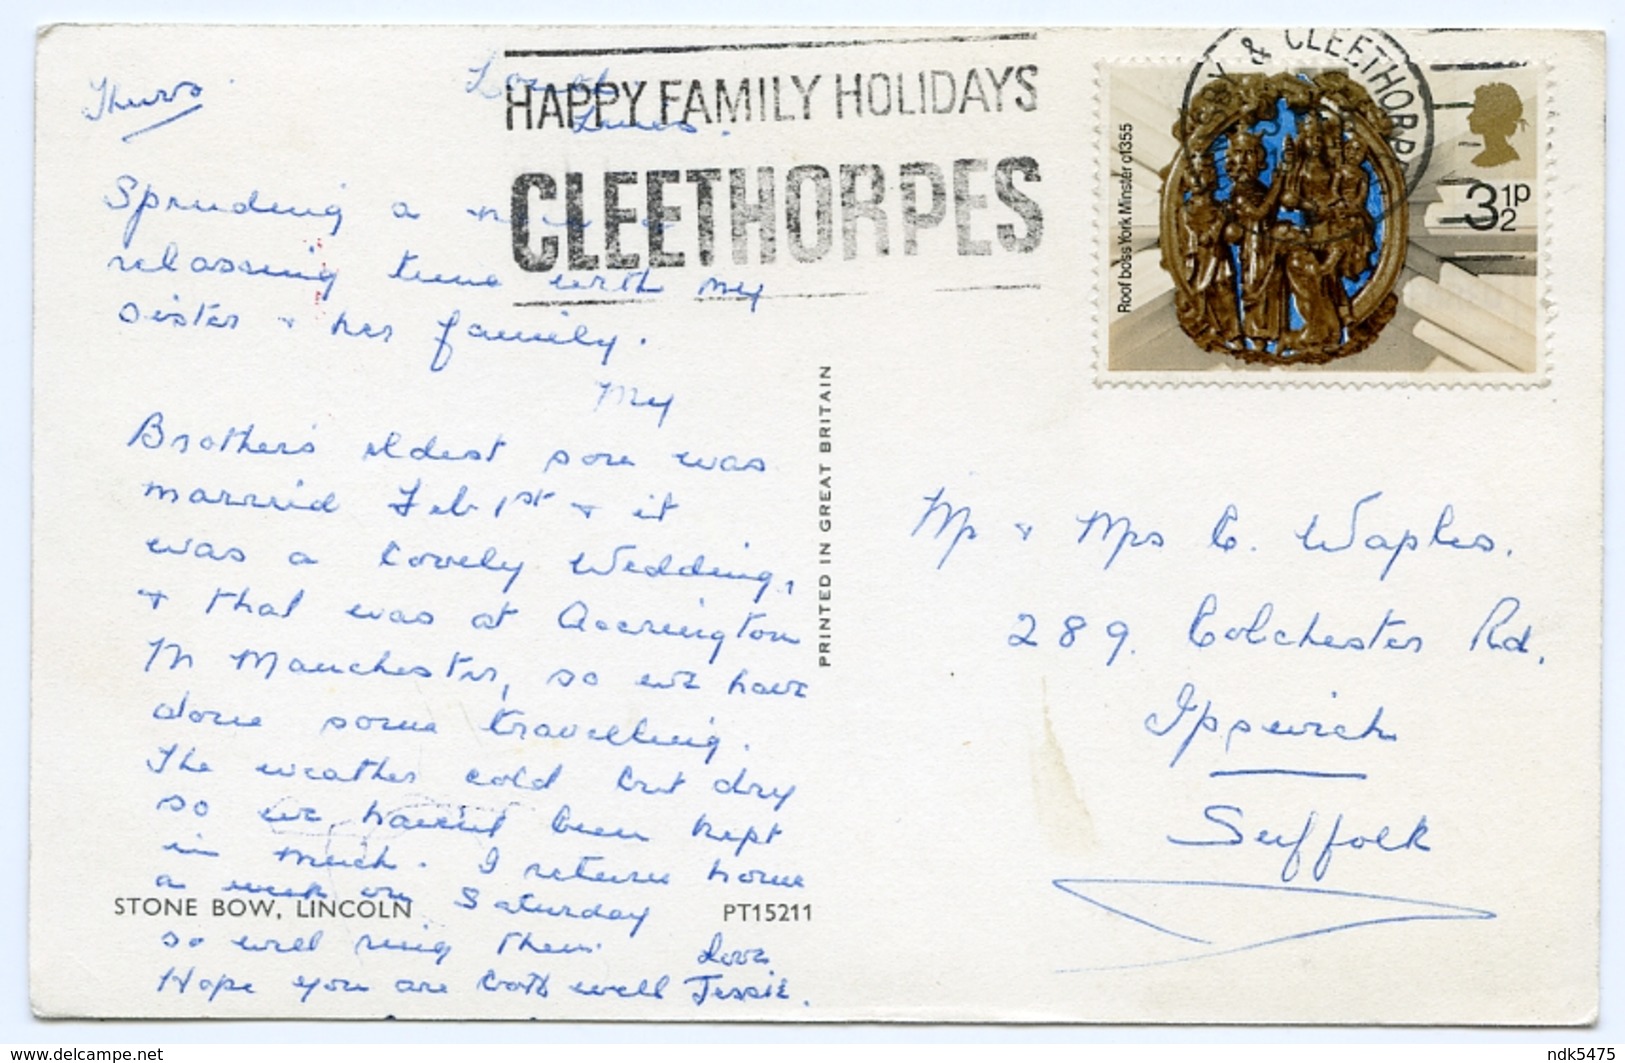 Thurs.
Louth
Lincs.
HAPPY FAMILY HOLIDAYS
CLEETHORPES
& CLEETHORP
Roof boss York Minster c1355
3½P
Spending a nice
relaxing time with my
sister + her family.
My
Brother's eldest son was
married Feb 1st + it
was a lovely Wedding,
+ that was at Accrington
in Manchester, so we have
done some travelling.
The weather cold but dry
so we havent been kept
in much. I return home
a week on Saturday
so will ring then. Love
Hope you are both well Jessie.
STONE BOW, LINCOLN PT15211
PRINTED IN GREAT BRITAIN
Mr + Mrs C. Waples.
289. Colchester Rd,
Ipswich
Suffolk
delcampe.net
ndk5475